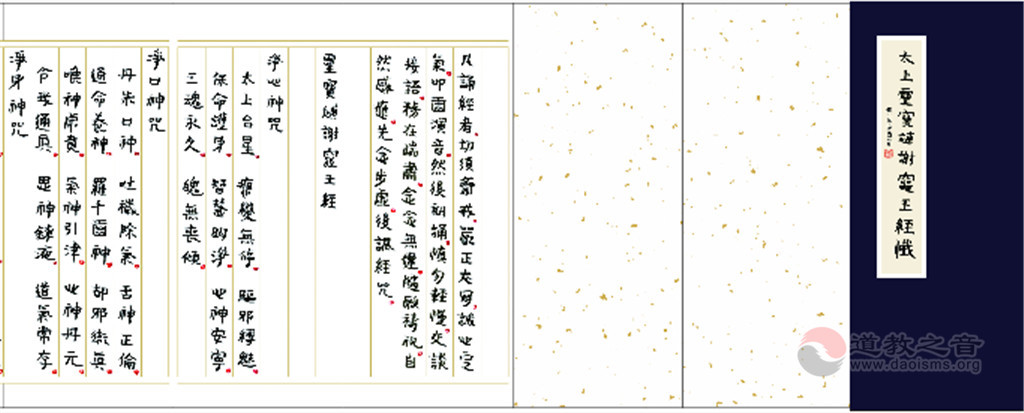 太上靈寶補謝竈王經懺
凡誦經者切須齋戒嚴正衣冠誠心定
氣叩齒演音然後朗誦慎勿輕慢交談
接語務在端肅念念無違隨願禱祝自
然感應先念步虛後誦經咒
靈寶補謝竈王經
淨心神咒
太上台星 應變無停 驅邪縛魅
保命護身 智慧明淨 心神安寧
三魂永久 魄無喪傾
淨口神咒
丹朱口神 吐穢除氛 舌神正倫
通命養神 羅千齒神 卻邪衛真
喉神虎賁 氣神引津 心神丹元
令我通真 思神鍊液 道氣常存
淨身神咒
道教之音
www.daoisms.org